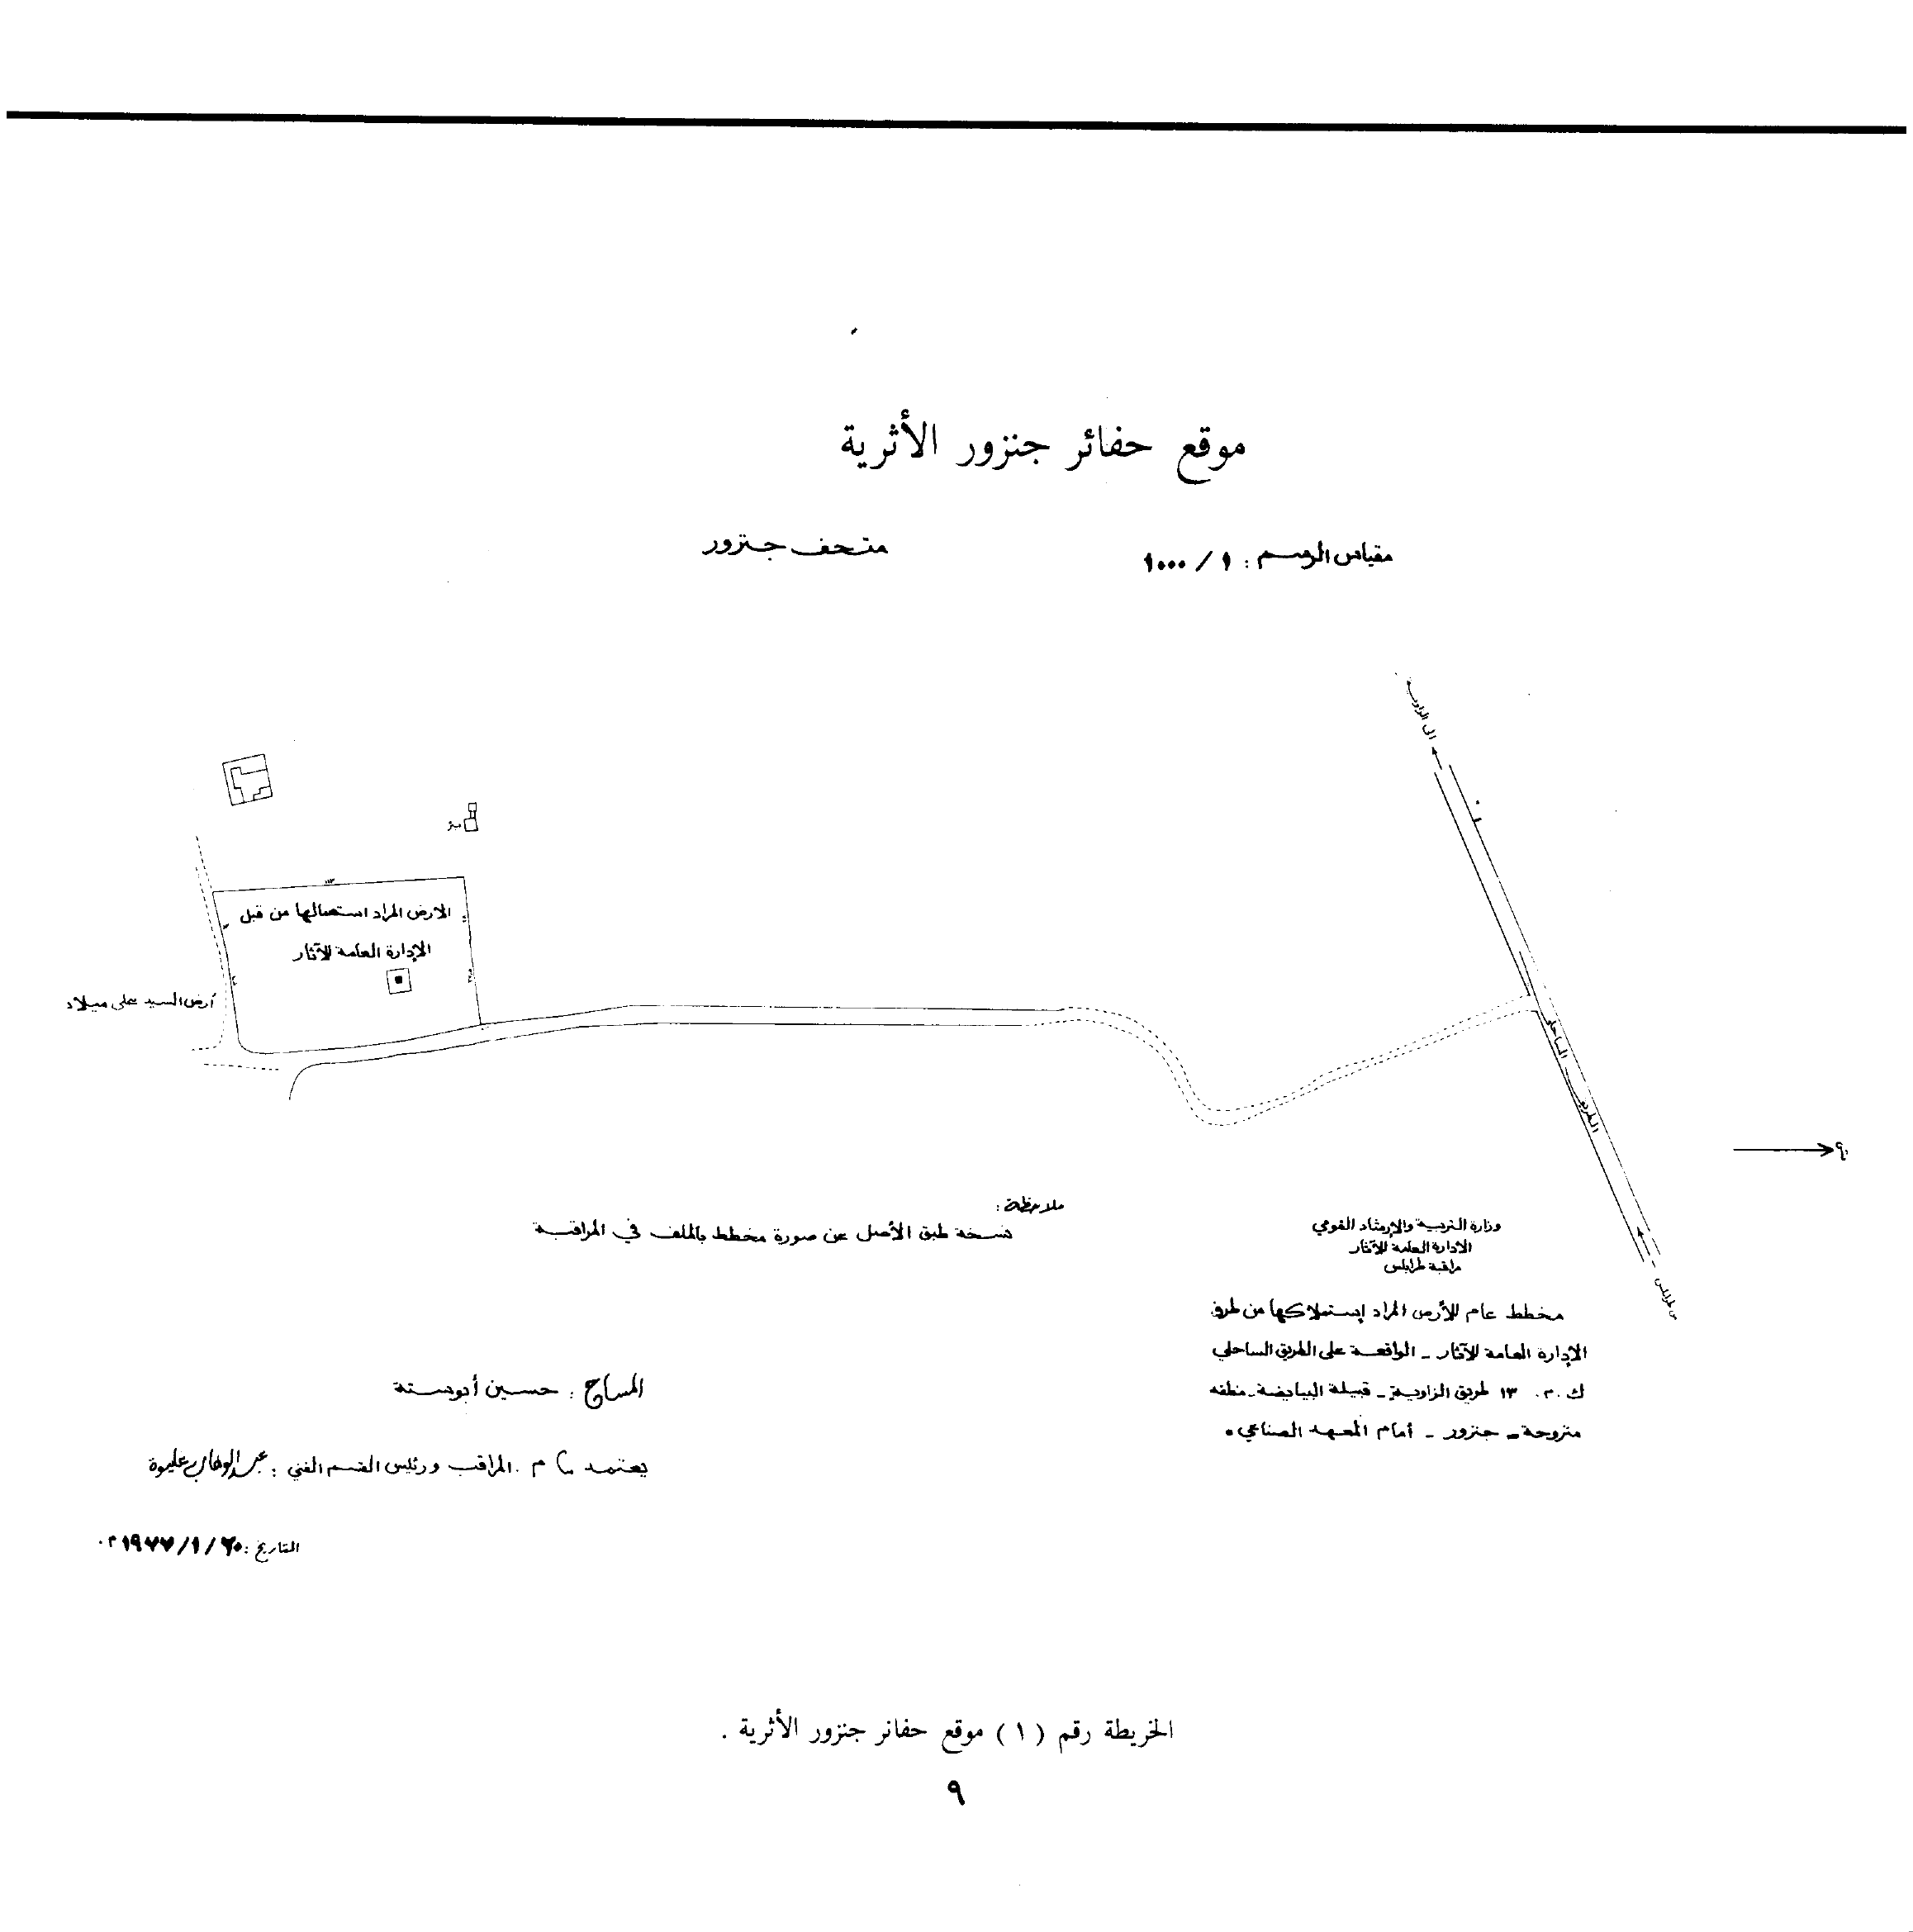 موقع حفائر جنزور الأثرية
مقياس الرسم : ١ / ١٠٠٠
متحف جنزور
الى الزاوية
بئر
الارض المراد استعمالها من قبل
الإدارة العامة للآثار
أرض السيد على ميلاد
الطريق الساحلي
من طرابلس
ملاحظة :
نسخة طبق الأصل عن صورة مخطط بالملف في المراقبة
وزارة التربية والإرشاد القومي
الادارة العامة للآثار
مراقبة طرابلس
مخطط عام للأرض المراد إستملاكها من طرف
الإدارة العامة للآثار - الواقعة على الطريق الساحلي
ك . م . ١٣ طريق الزاوية - قبيلة البيايضة - منطقه
متروحة - جنزور - أمام المعهد الصناعي .
المساح : حسين أبوستة
يعتمد م . المراقب ورئيس القسم الفني : عبدالوهاب عليوة
التاريخ : ٢٠ / ١ / ١٩٧٧ م .
الخريطة رقم ( ١ ) موقع حفائر جنزور الأثرية .
٩